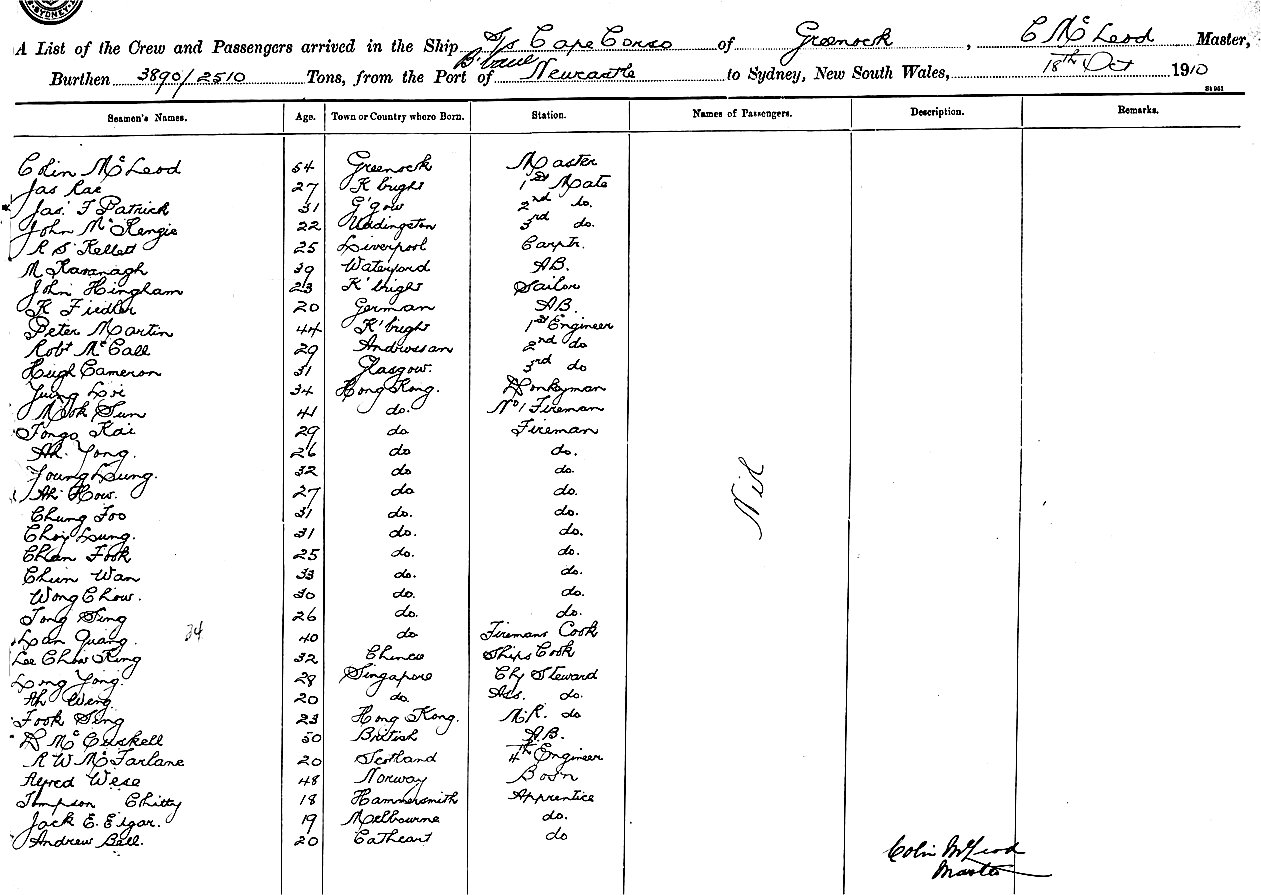 SYDNEY
A List of the Crew and Passengers arrived in the Ship S/S Cape Corso of Greenock, C McLeod Master,
B'bane
Burthen 3890/2510 Tons, from the Port of Newcastle to Sydney, New South Wales, 18th Oct 1910
Seamen's Names. Age. Town or Country where Born. Station. Names of Passengers. Description. Remarks.
Colin McLeod 54 Greenock Master
Jas Rae 27 K'bright 1st Mate
Jas. F Patrick 31 G'gow 2nd do.
John McKenzie 22 Uddingston 3rd do.
R S Kellett 25 Liverpool Carptr.
M Kavanagh 39 Waterford AB.
John Hingham 23 K'bright Sailor
K Fiedler 20 German AB.
Peter Martin 44 K'bright 1st Engineer
Robt McCall 29 Androssan 2nd do
Hugh Cameron 31 Glasgow. 3rd do
34 Hong Kong. Donkyman
Mook Sun 41 do. No 1 Fireman
Tongo Kai 29 do. Fireman
Ah. Yong. 26 do do.
Young Lung. 32 do do.
Ah How. 27 do do.
Chung Foo 31 do. do.
Choy Lung. 31 do. do.
Chan Fook 25 do. do.
Chun Wan 33 do. do.
Wong Chow. 30 do. do.
Tong Sing 26 do. do.
Lan Quang. 24 40 do Firemans Cook
Lee Chow King 32 Chinese Ships Cook
Long Yong. 28 Singapore Chf Steward
Ah Weng 20 do. Ass. do.
Fook Sing 23 Hong Kong. M.R. do
D McCuskell 50 British A.B.
R W McFarlane 20 Scotland 4th Engineer
Alfred Wese 48 Norway Bosn
Chitty 18 Hammersmith Apprentice
Jack E. Elgar. 19 Melbourne do.
Andrew Ball. 20 Cathcart do
Nil
Colin McLeod
Master